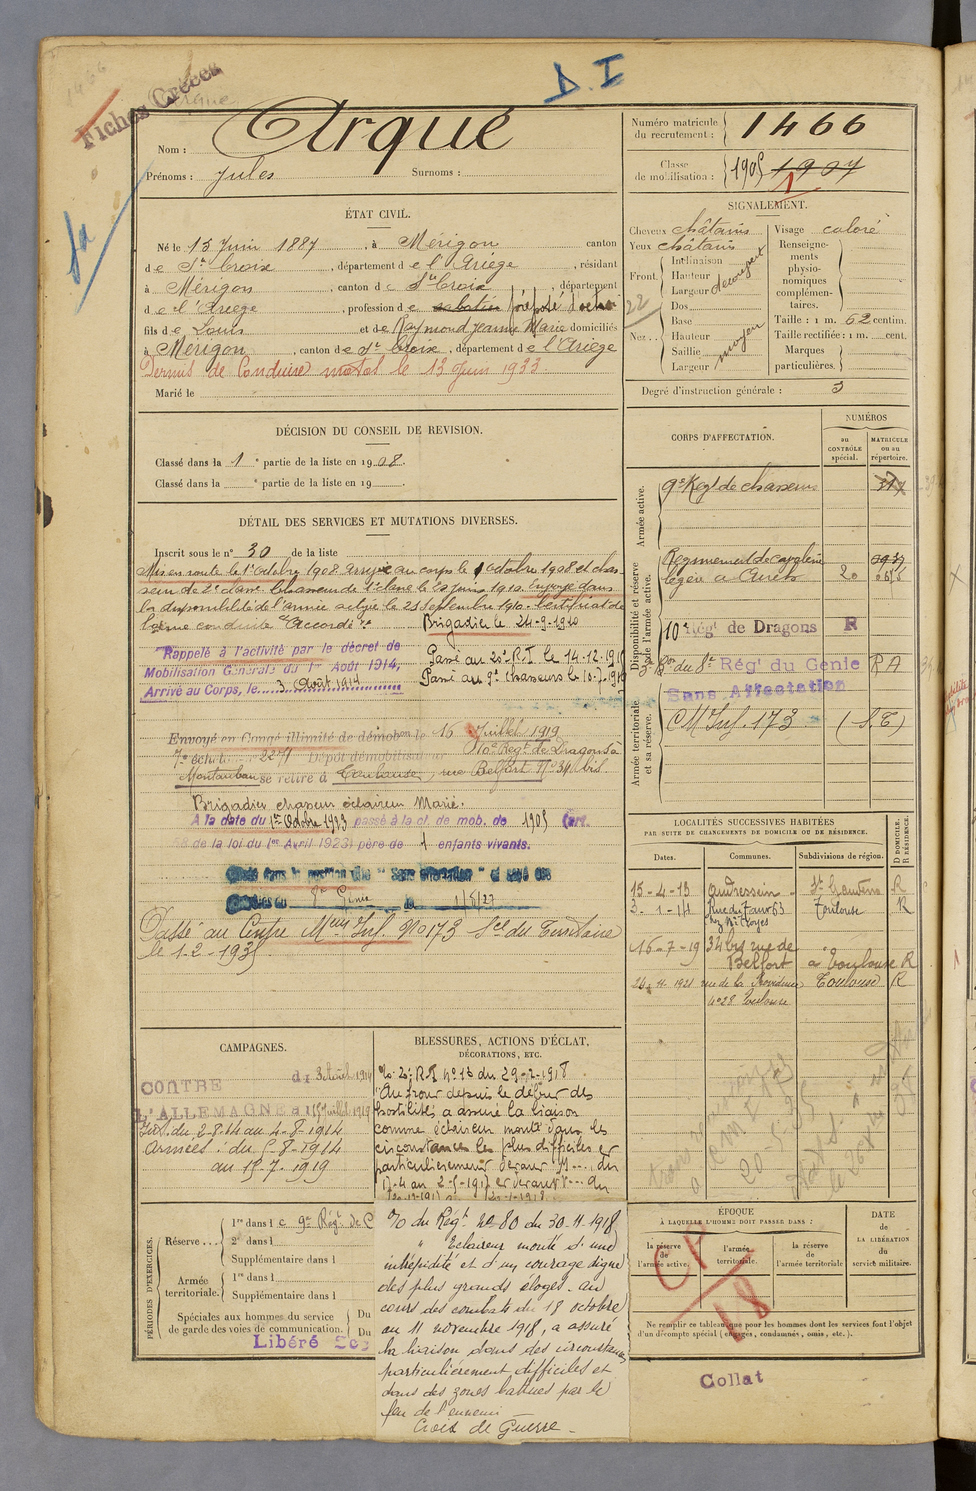 D.I
Fiches Créées
Nom : Arqué
Prénoms : Jules Surnoms :
Numéro matricule du recrutement : 1466
Classe de mobilisation : 1905 1907
ÉTAT CIVIL.
Né le 13 Juin 1887, à Mérigon canton
de Ste Croix, département de l'Ariège, résidant
à Mérigon, canton de Ste Croix, département
de l'Ariège, profession de sabotier préposé d'octroi
fils de Louis et de Raymond Jeanne Marie domiciliés
à Mérigon, canton de Ste Croix, département de l'Ariège
Permis de Conduire motos le 13 Juin 1933.
Marié le
SIGNALEMENT.
Cheveux châtains
Yeux châtains
Front. Inclinaison
Hauteur
Largeur découvert
Nez... Dos
Base
Hauteur
Saillie moyen
Largeur
22
Visage coloré
Renseignements physionomiques complémentaires.
Taille : 1 m. 62 centim.
Taille rectifiée : 1 m. cent.
Marques particulières.
Degré d'instruction générale : 3
DÉCISION DU CONSEIL DE REVISION.
Classé dans la 1e partie de la liste en 1908.
Classé dans la e partie de la liste en 19
DÉTAIL DES SERVICES ET MUTATIONS DIVERSES.
Inscrit sous le n° 30 de la liste
Mis en route le 1er octobre 1908 arrivé au corps le 1 octobre 1908 et chas-
seur de 2e classe. Chasseur de 1e classe le 20 juin 1910. Envoyé dans
la disponibilité de l'armée active le 25 Septembre 1910. Certificat de
bonne conduite "Accordé".
Brigadier le 24-9-1910
Rappelé à l'activité par le décret de
Mobilisation Générale du 1er Août 1914,
Arrivé au Corps, le 3 Août 1914
Passé au 20e R.I le 14-12-1917
Passé au 9e Chasseurs le 10-7-1919
Envoyé en Congé illimité de démobon le 16 Juillet 1919
7e échelon Dépôt démobilisateur 10e Regt de Dragons à
Montauban se retire à Toulouse, rue Belfort N°34 bis.
Brigadier chasseur éclaireur Marié.
A la date du 1er Octobre 1923 passé à la cl. de mob. de 1905 (art.
58 de la loi du 1er Avril 1923) père de 1 enfants vivants.
Classé dans la position dite " Sans affectation " et rayé des
Contrôles du 8e Génie le 1/5/27
Passé au Centre Meur Inf. N°173 Son du Territoire
le 1-2-1935.
CORPS D'AFFECTATION.
NUMÉROS
au CONTRÔLE spécial.
MATRICULE ou au répertoire.
Armée active.
9e Regt de chasseurs 317
Disponibilité et réserve de l'armée active.
Régiment de cavalerie
légère à Auch 20
10e Régt de Dragons R
3e Bon du 8e Régt du Génie RA
Sans Affectation
Armée territoriale et sa réserve.
CM Inf. 173 (SE)
LOCALITÉS SUCCESSIVES HABITÉES
PAR SUITE DE CHANGEMENTS DE DOMICILE OU DE RÉSIDENCE.
Dates. Communes. Subdivisions de région. D DOMICILE. R RÉSIDENCE.
15-4-13 Audressein St Gaudens R
3-1-14 Rue du Taur 63 Toulouse R
16-7-19 34 bis rue de
Belfort à Toulouse R
24-11-1921 rue de la Providence Toulouse R
n°28 Toulouse
CAMPAGNES.
CONTRE du 3 Août 1914
L'ALLEMAGNE au 15 Juillet 1919
Int. du 2-8-14 au 4-8-1914
Armées : du 5-8-1914
au 15-7-1919
BLESSURES, ACTIONS D'ÉCLAT,
DÉCORATIONS, ETC.
o/o 20e R.I n°13 du 29-7-1918
"Au front depuis le début des
hostilités, a assuré la liaison
comme éclaireur monté dans les
circonstances les plus difficiles et
particulièrement devant M.... du
17-4 au 2-5-1917 et devant V... du
o/o du Régt n° 80 du 30-11-1918
" Eclaireur monté d'une
intrépidité et d'un courage digne
des plus grands éloges. Au
cours des combats du 18 octobre
au 11 novembre 1918, a assuré
la liaison dans des circonstances
particulièrement difficiles et
dans des zones battues par le
feu de l'ennemi
Croix de Guerre
PÉRIODES D'EXERCICES.
Réserve... 1re dans le 9e Régt de C
2e dans l
Supplémentaire dans l
Armée territoriale. 1re dans l
Supplémentaire dans l
Spéciales aux hommes du service de garde des voies de communication. Du
Du
Libéré
ÉPOQUE
À LAQUELLE L'HOMME DOIT PASSER DANS :
la réserve de l'armée active.
l'armée territoriale.
la réserve de l'armée territoriale
DATE de LA LIBÉRATION du service militaire.
CP
18
Ne remplir ce tableau que pour les hommes dont les services font l'objet
d'un décompte spécial (engagés, condamnés, omis, etc.).
Collat